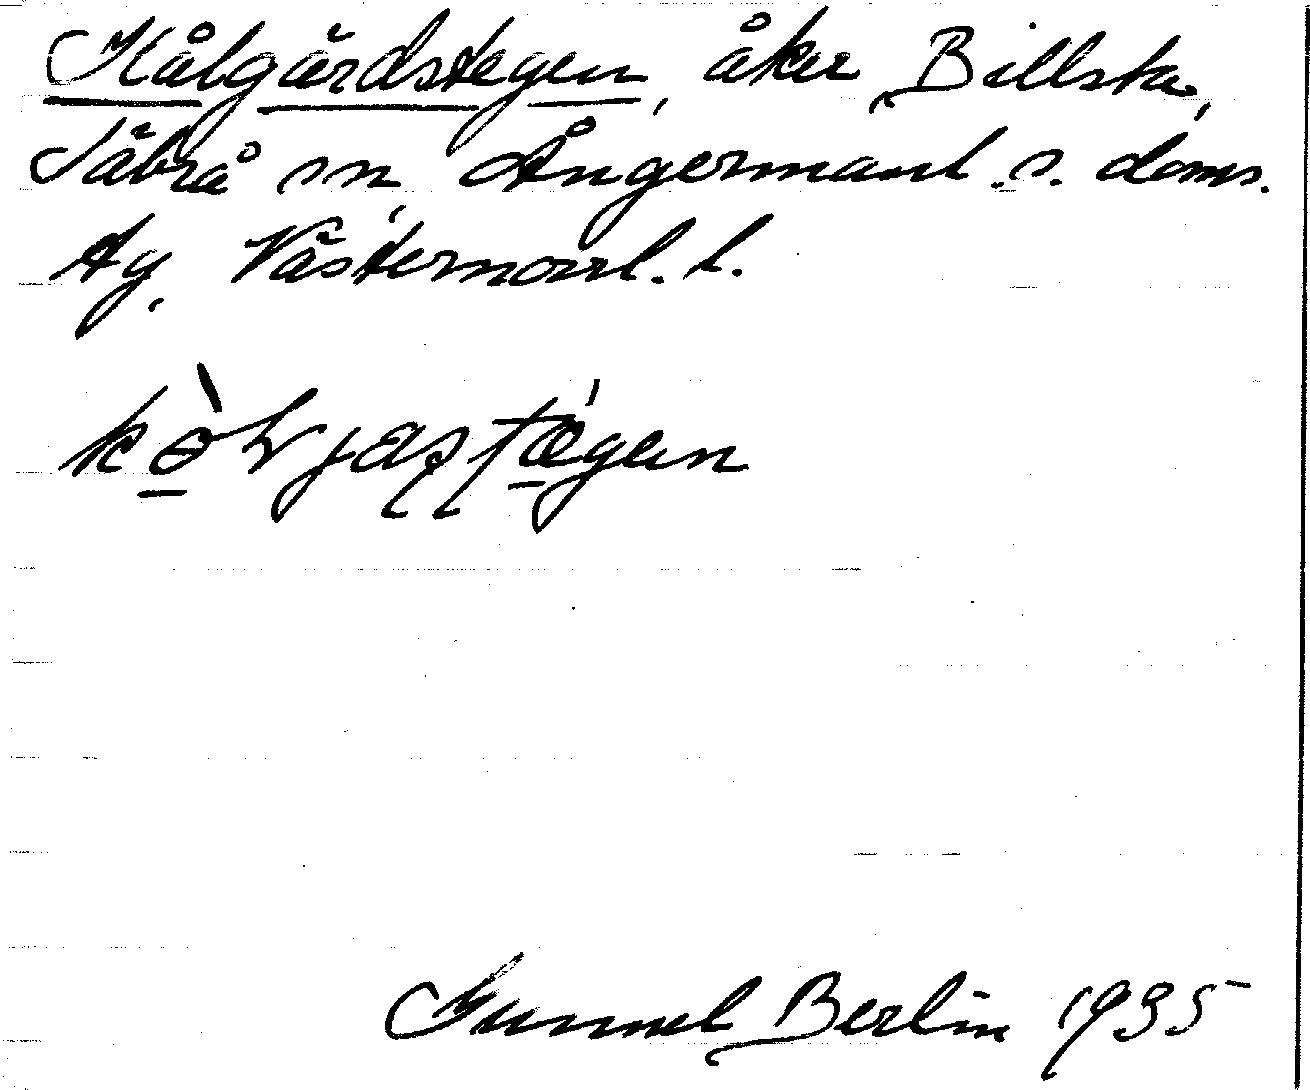 Kålgärdstegen, åker Billsta,
Säbrå sn, Ångermanl. s. doms.
tg, Västernorrl. l.
Gunnel Berlin 1935